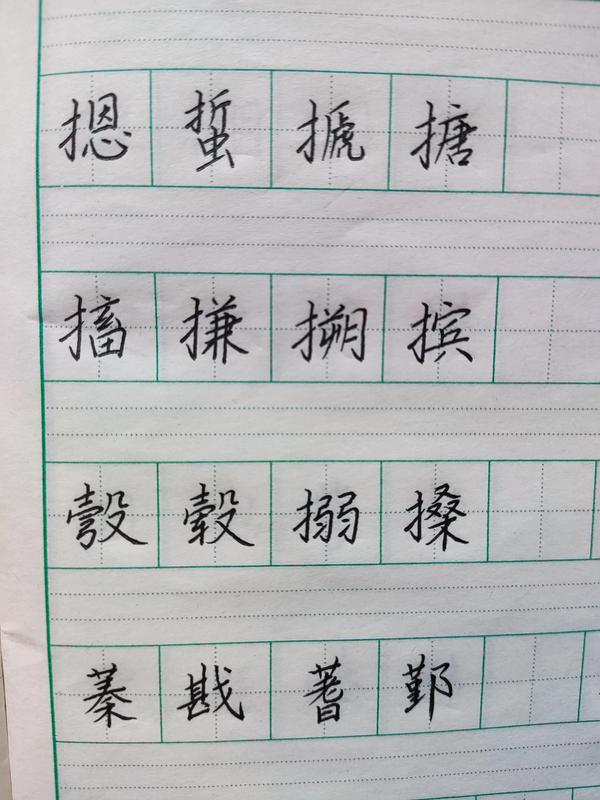 摁蜇搋搪
搐搛搠摈
彀毂搦搡
蓁戡蓍鄞